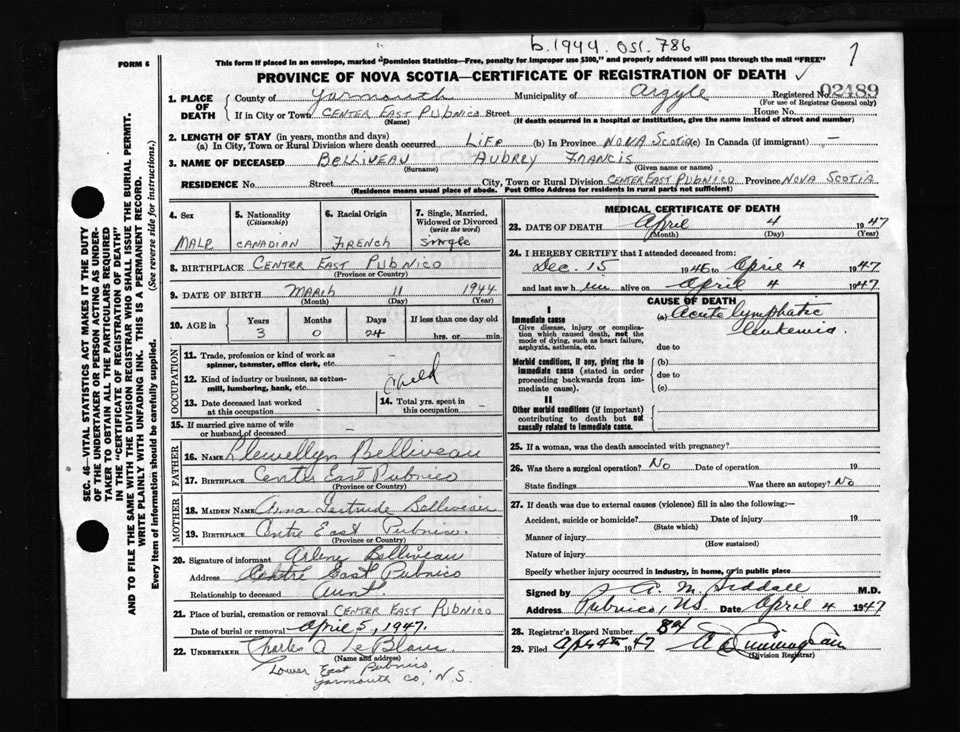 b.1944. OSI. 786
1
FORM 6
This form if placed in an envelope, marked "Dominion Statistics—Free, penalty for improper use $300," and properly addressed will pass through the mail "FREE"
PROVINCE OF NOVA SCOTIA—CERTIFICATE OF REGISTRATION OF DEATH
SEC. 46—VITAL STATISTICS ACT MAKES IT THE DUTY
OF THE UNDERTAKER OR PERSON ACTING AS UNDER-
TAKER TO OBTAIN ALL THE PARTICULARS REQUIRED
IN THE "CERTIFICATE OF REGISTRATION OF DEATH"
AND TO FILE THE SAME WITH THE DIVISION REGISTRAR WHO SHALL ISSUE THE BURIAL PERMIT.
WRITE PLAINLY WITH UNFADING INK. THIS IS A PERMANENT RECORD.
Every item of Information should be carefully supplied. (See reverse side for instructions.)
1. PLACE OF DEATH County of Yarmouth Municipality of Argyle Registered No. 02489
(For use of Registrar General only)
If in City or Town CENTER EAST PUBNICO Street House No.
(Name) (If death occurred in a hospital or institution, give the name instead of street and number)
2. LENGTH OF STAY (in years, months and days)
(a) In City, Town or Rural Division where death occurred LIFE (b) In Province NOVA SCOTIA (c) In Canada (if immigrant) —
3. NAME OF DECEASED BELLIVEAU AUBREY FRANCIS
(Surname) (Given name or names)
RESIDENCE No. Street City, Town or Rural Division CENTER EAST PUBNICO Province NOVA SCOTIA
(Residence means usual place of abode. Post Office Address for residents in rural parts not sufficient)
4. Sex 5. Nationality (Citizenship) 6. Racial Origin 7. Single, Married, Widowed or Divorced (write the word)
MALE CANADIAN FRENCH Single
8. BIRTHPLACE CENTER EAST PUBNICO
(Province or Country)
9. DATE OF BIRTH March 11 1944
(Month) (Day) (Year)
10. AGE in Years Months Days If less than one day old
3 0 24 hrs. or min.
OCCUPATION
11. Trade, profession or kind of work as
spinner, teamster, office clerk, etc.
12. Kind of industry or business, as cotton-
mill, lumbering, bank, etc. Child
13. Date deceased last worked
at this occupation
14. Total yrs. spent in
this occupation
15. If married give name of wife
or husband of deceased
FATHER
16. Name Llewellyn Belliveau
17. Birthplace Center East Pubnico
(Province or Country)
MOTHER
18. Maiden Name Anna Gertrude Belliveau
19. Birthplace Centre East Pubnico.
(Province or Country)
20. Signature of informant Arlene Belliveau
Address Centre East Pubnico
Relationship to deceased Aunt.
21. Place of burial, cremation or removal CENTER EAST PUBNICO
Date of burial or removal April 5, 1947.
22. UNDERTAKER Charles A LeBlanc
(Name and address)
Lower East Pubnico,
Yarmouth Co, N.S.
MEDICAL CERTIFICATE OF DEATH
23. DATE OF DEATH April 4 1947
(Month) (Day) (Year)
24. I HEREBY CERTIFY that I attended deceased from:
Dec. 15 1946 to April 4 1947
and last saw him alive on April 4 1947
CAUSE OF DEATH
I
Immediate cause (a) Acute lymphatic
Give disease, injury or complica-
tion which caused death, not the
mode of dying, such as heart failure,
asphyxia, asthenia, etc.
leukemia.
due to
Morbid conditions, if any, giving rise to
immediate cause (stated in order
proceeding backwards from im-
mediate cause).
(b)
due to
(c)
II
Other morbid conditions (if important)
contributing to death but not
causally related to immediate cause.
25. If a woman, was the death associated with pregnancy?
26. Was there a surgical operation? No Date of operation 19
State findings Was there an autopsy? No
27. If death was due to external causes (violence) fill in also the following:—
Accident, suicide or homicide? Date of injury 19
(State which)
Manner of injury
(How sustained)
Nature of injury
Specify whether injury occurred in Industry, in home, or in public place
Signed by A. M. Siddall M.D.
Address Pubnico, NS Date April 4 1947
28. Registrar's Record Number
29. Filed 1947
(Division Registrar)